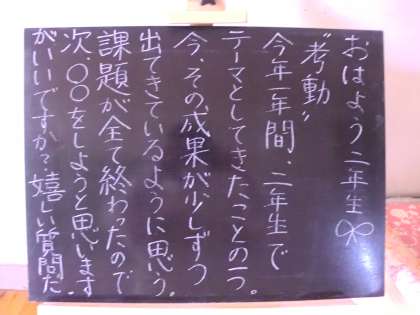 おはよう二年生
"考動"
今年一年間、二年生で
テーマとしてきたことの一つ。
今、その成果が少しずつ
出てきているように思う。
課題が全て終わったので
次、〇〇をしようと思います
がいいですか？嬉しい質問だ。